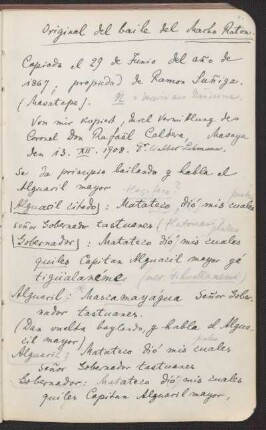 Original del baile del Macho Ratón.
Copiado el 29 de Junio del año de
1867, propiedad de Ramon Suñiga.
(Masatepe).
Von mir kopiert, durch Vermittlung des
Coronel Don Rafaël Caldera, Masaya
den 13. XII. 1908. Dr Walter Lehmann.
Se da principio bailando y habla el
Alguacil mayor
[Alguacil citado]: Matateco dió mis cuales
señor Gobernador tastuanes
[Gobernador]: Matateco dió mis cuales
quiles Capitan Alguacil mayor ya
tiguialanéme
Alguacil: Mascamayagua Señor Gober-
nador tastuanes.
(Dan vuelta baylando y habla el Algua-
cil mayor)
Alguacil: Matateco dió mis cuales
Señor Gobernador tastuanes
Gobernador: Matateco dió mis cuales
quiles Capitan Alguacil mayor,